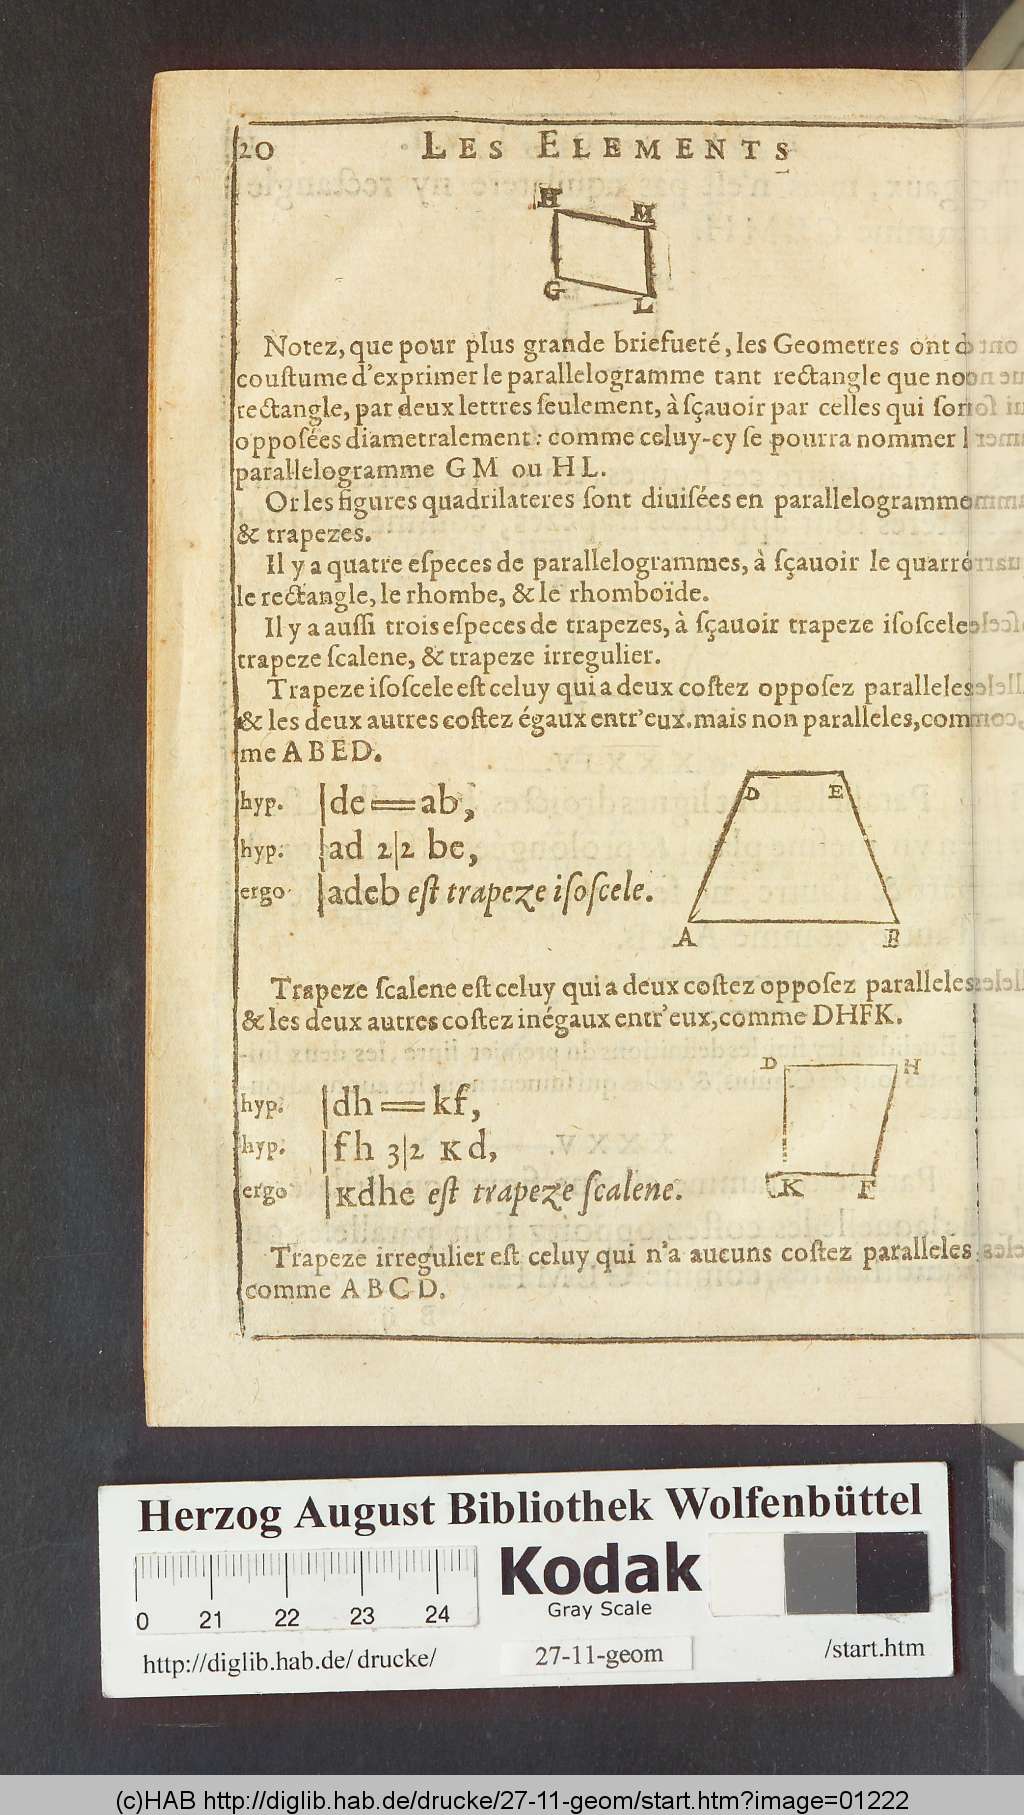 20 LES ELEMENTS
H
M
G
L
Notez, que pour plus grande briefueté, les Geometres ont
couſtume d'exprimer le parallelogramme tant rectangle que non
rectangle, par deux lettres ſeulement, à ſçauoir par celles qui ſont
oppoſées diametralement: comme celuy-cy ſe pourra nommer
parallelogramme G M ou H L.
Or les figures quadrilateres ſont diuiſées en parallelogramme
& trapezes.
Il y a quatre eſpeces de parallelogrammes, à ſçauoir le quarré
le rectangle, le rhombe, & le rhomboïde.
Il y a auſſi trois eſpeces de trapezes, à ſçauoir trapeze iſoſcele
trapeze ſcalene, & trapeze irregulier.
Trapeze iſoſcele eſt celuy qui a deux coſtez oppoſez paralleles
& les deux autres coſtez égaux entr'eux. mais non paralleles, com
me A B E D.
D E
hyp. |de == ab,
hyp. |ad 2|2 be,
ergo |adeb eſt trapeze iſoſcele.
A B
Trapeze ſcalene eſt celuy qui a deux coſtez oppoſez paralleles
& les deux autres coſtez inégaux entr'eux, comme DHFK.
D H
hyp. |dh == kf,
hyp. |fh 3|2 Kd,
ergo |Kdhe eſt trapeze ſcalene.
K F
Trapeze irregulier eſt celuy qui n'a aucuns coſtez paralleles
comme A B C D.
Herzog August Bibliothek Wolfenbüttel
0 21 22 23 24
Kodak
Gray Scale
http://diglib.hab.de/ drucke/ 27-11-geom /start.htm
(c)HAB http://diglib.hab.de/drucke/27-11-geom/start.htm?image=01222